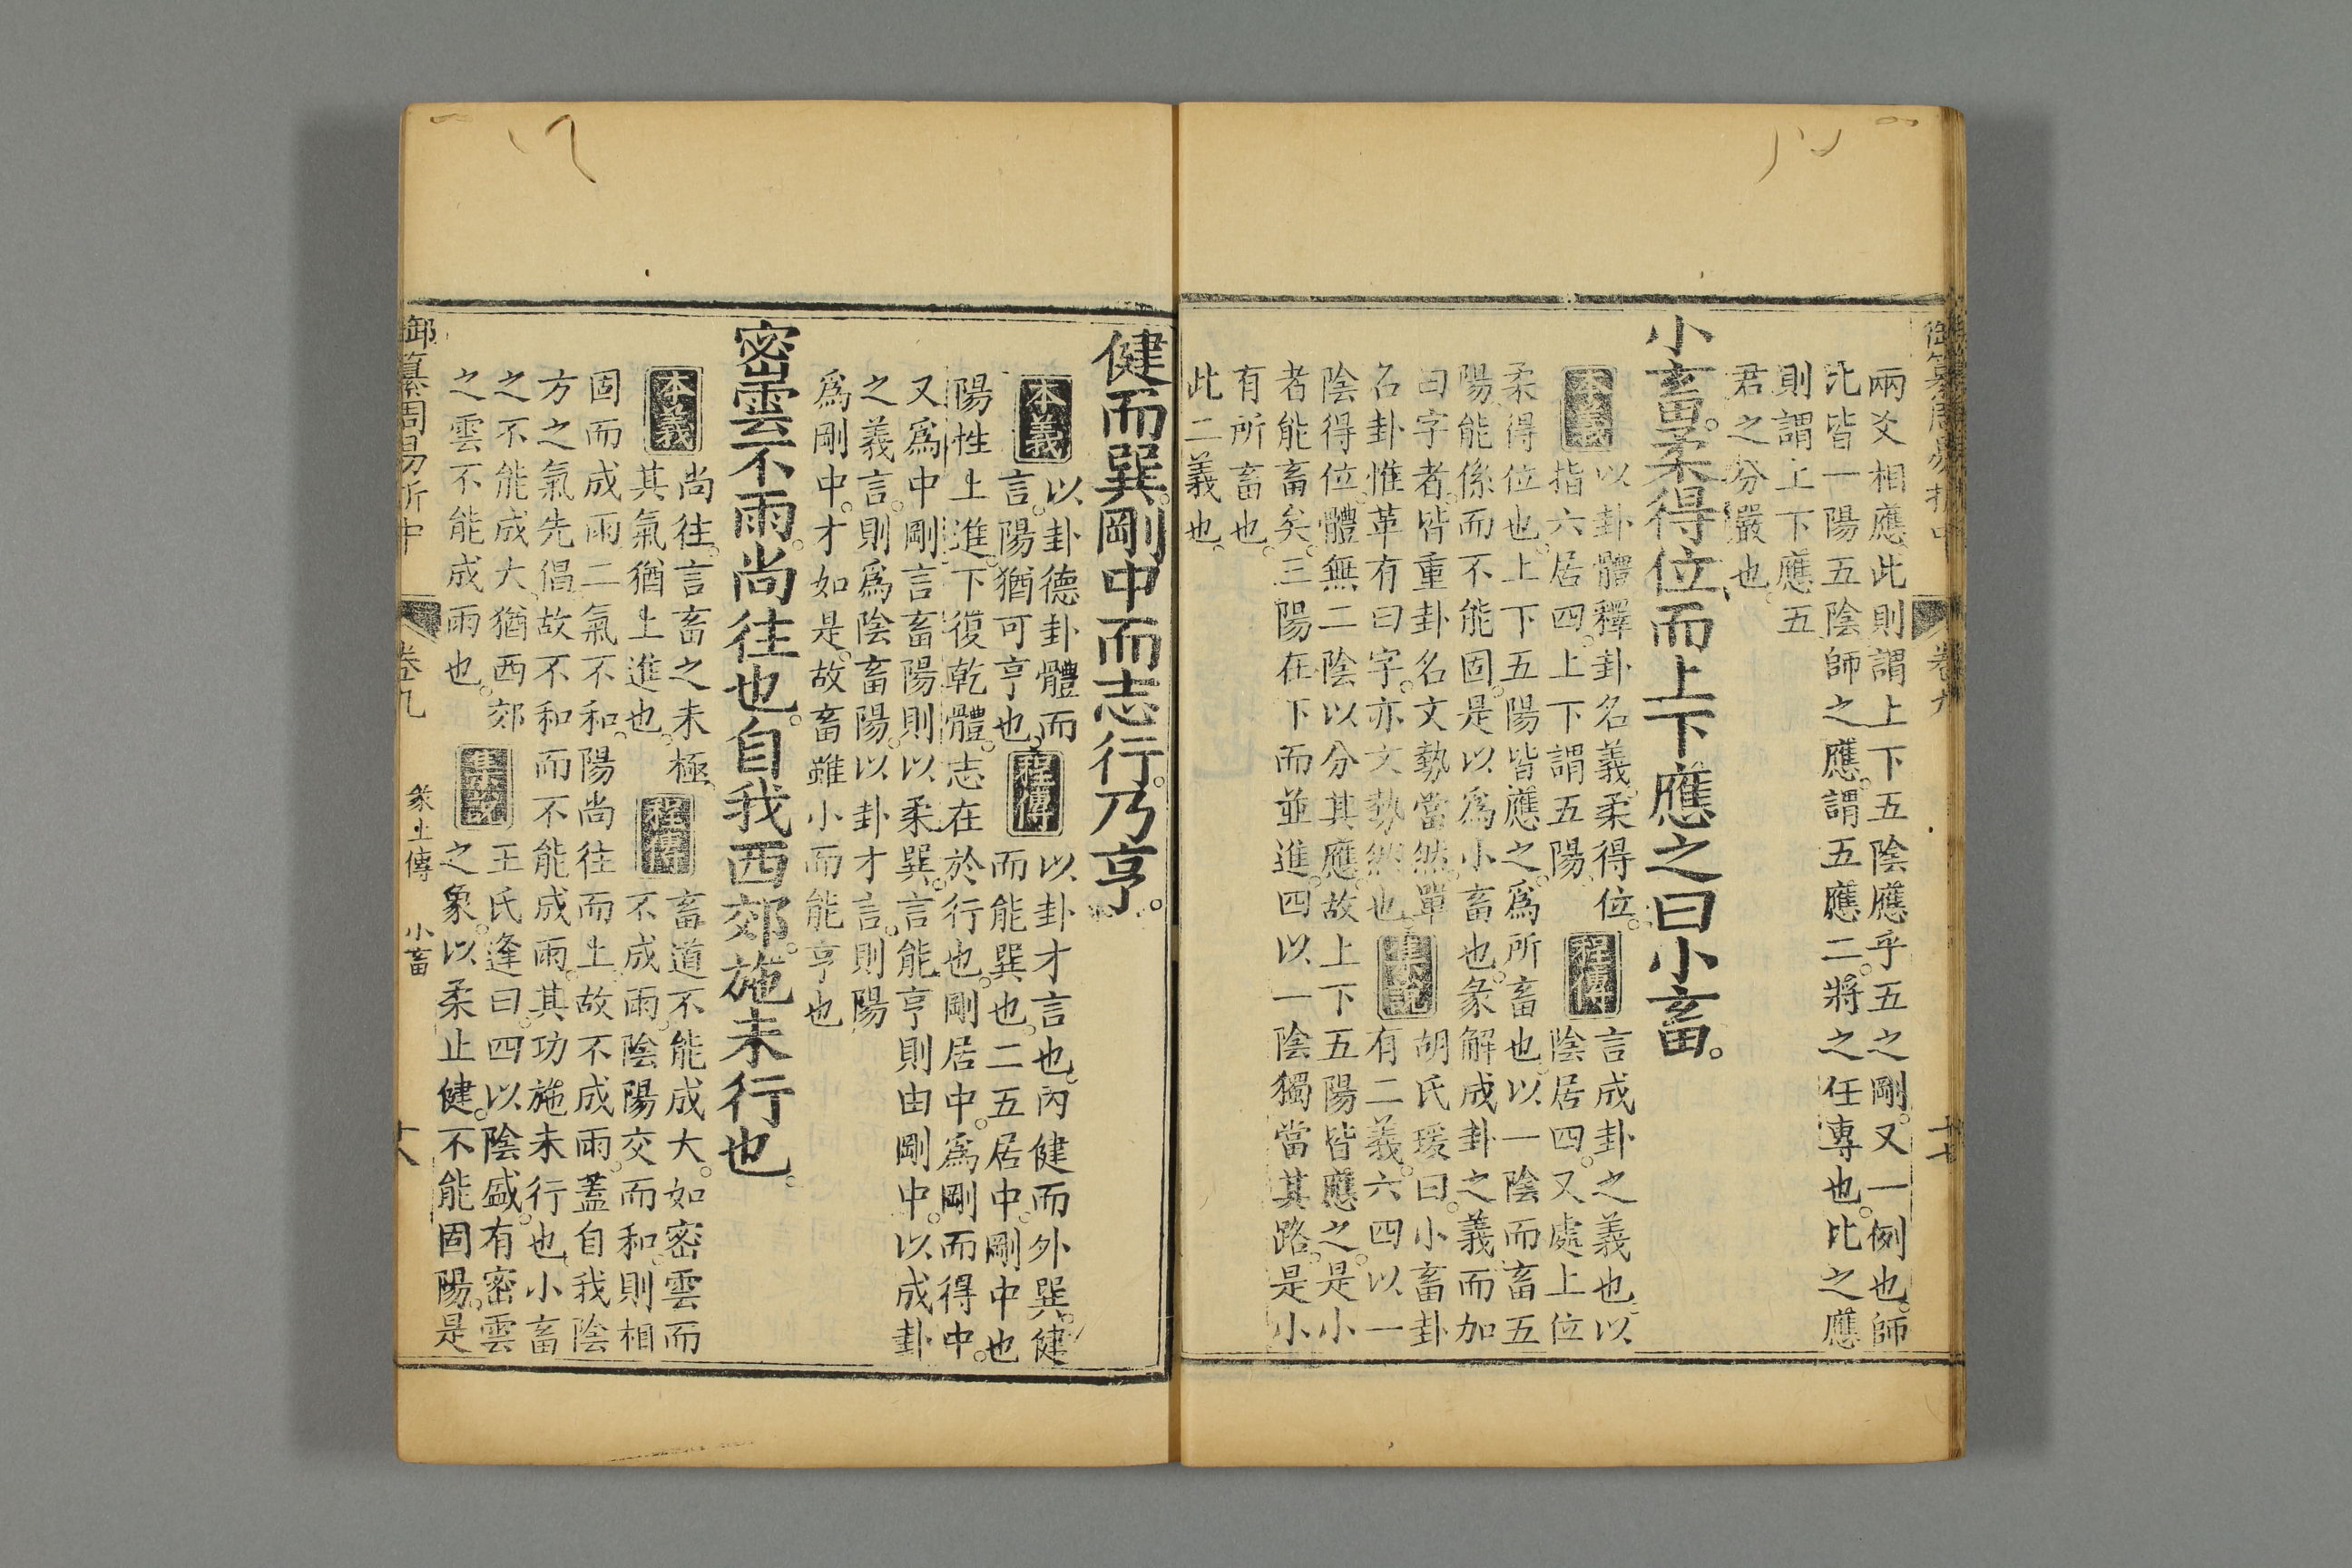 兩爻相應。此則謂上下五陰應乎五之剛。又一例也。師
比皆一陽五陰。師之應。謂五應二。將之任專也。比之應
則謂上下應五
君之分嚴也。
小畜。柔得位而上下應之曰小畜。
本義
以卦體釋卦名義。柔得位。
指六居四。上下謂五陽。
程傳
言成卦之義也。以
陰居四。又處上位
柔得位也。上下五陽皆應之。爲所畜也。以一陰而畜五
陽。能係而不能固。是以爲小畜也。彖解成卦之義。而加
曰字者。皆重卦名文勢當然。單
名卦惟革有曰字。亦文勢然也。
集說
胡氏瑗曰。小畜卦
有二義。六四以一
陰得位。體無二陰以分其應。故上下五陽皆應之。是小
者能畜矣。三陽在下而並進。四以一陰獨當其路。是小
有所畜也。
此二義也。
御纂周易折中
卷九
十七
健而巽。剛中而志行。乃亨。
本義
以卦德卦體而
言。陽猶可亨也。
程傳
以卦才言也。內健而外巽。健
而能巽也。二五居中。剛中也
陽性上進。下復乾體。志在於行也。剛居中。爲剛而得中。
又爲中剛。言畜陽則以柔巽。言能亨則由剛中。以成卦
之義言。則爲陰畜陽。以卦才言。則陽
爲剛中。才如是。故畜雖小而能亨也
密雲不雨。尚往也。自我西郊。施未行也。
本義
尚往。言畜之未極。
其氣猶上進也。
程傳
畜道不能成大。如密雲而
不成雨。陰陽交而和。則相
固而成雨。二氣不和。陽尚往而上。故不成雨。蓋自我陰
方之氣先倡。故不和而不能成雨。其功施未行也。小畜
之不能成大。猶西郊
之雲不能成雨也。
集說
王氏逢曰。四以陰盛。有密雲
之象。以柔止健。不能固陽。是
御纂周易折中
卷九
彖上傳
小畜
十八